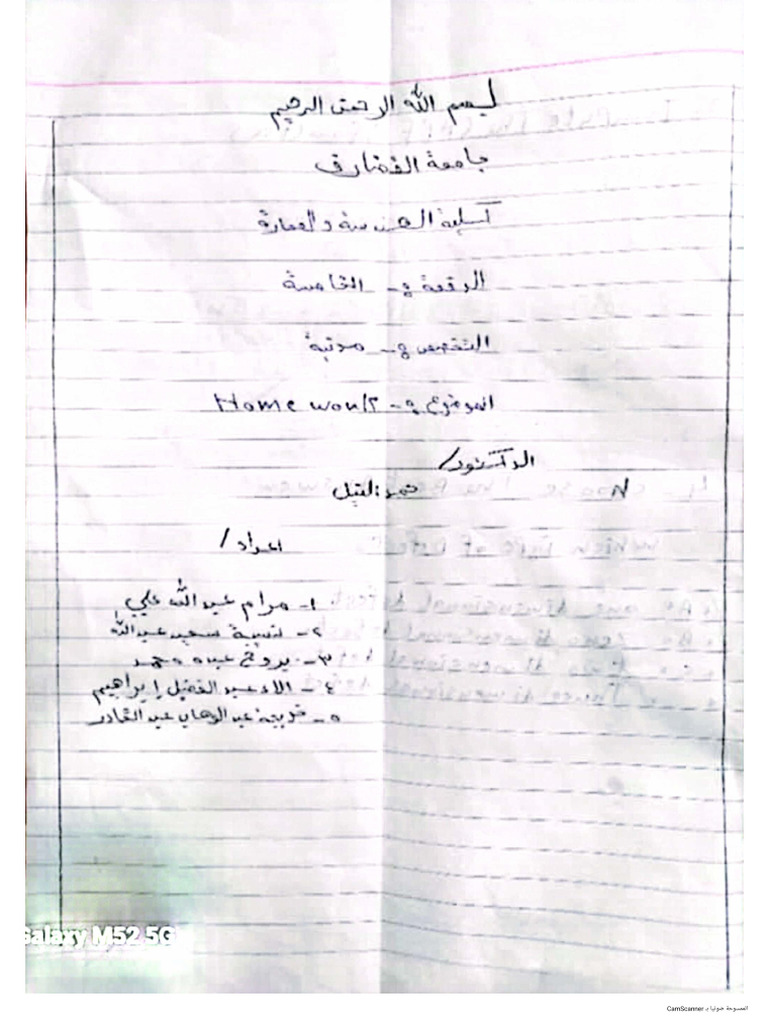 بسم الله الرحمن الرحيم
جامعة القضارف
كلية الهندسة والعمارة
الدفعة :- الخامسة
التخصص :- مدنية
الموضوع :- Home work
الدكتور/
محمد النيل
اعداد /
١- مرام عبدالله علي
٢- نسيبة سعيد عبدالله
٣- عبده محمد
٤- الاء عبد الفضيل إبراهيم
٥- خديجة عبد الوهاب عبد القادر
Galaxy M52 5G
الممسوحة ضوئيا بـ CamScanner